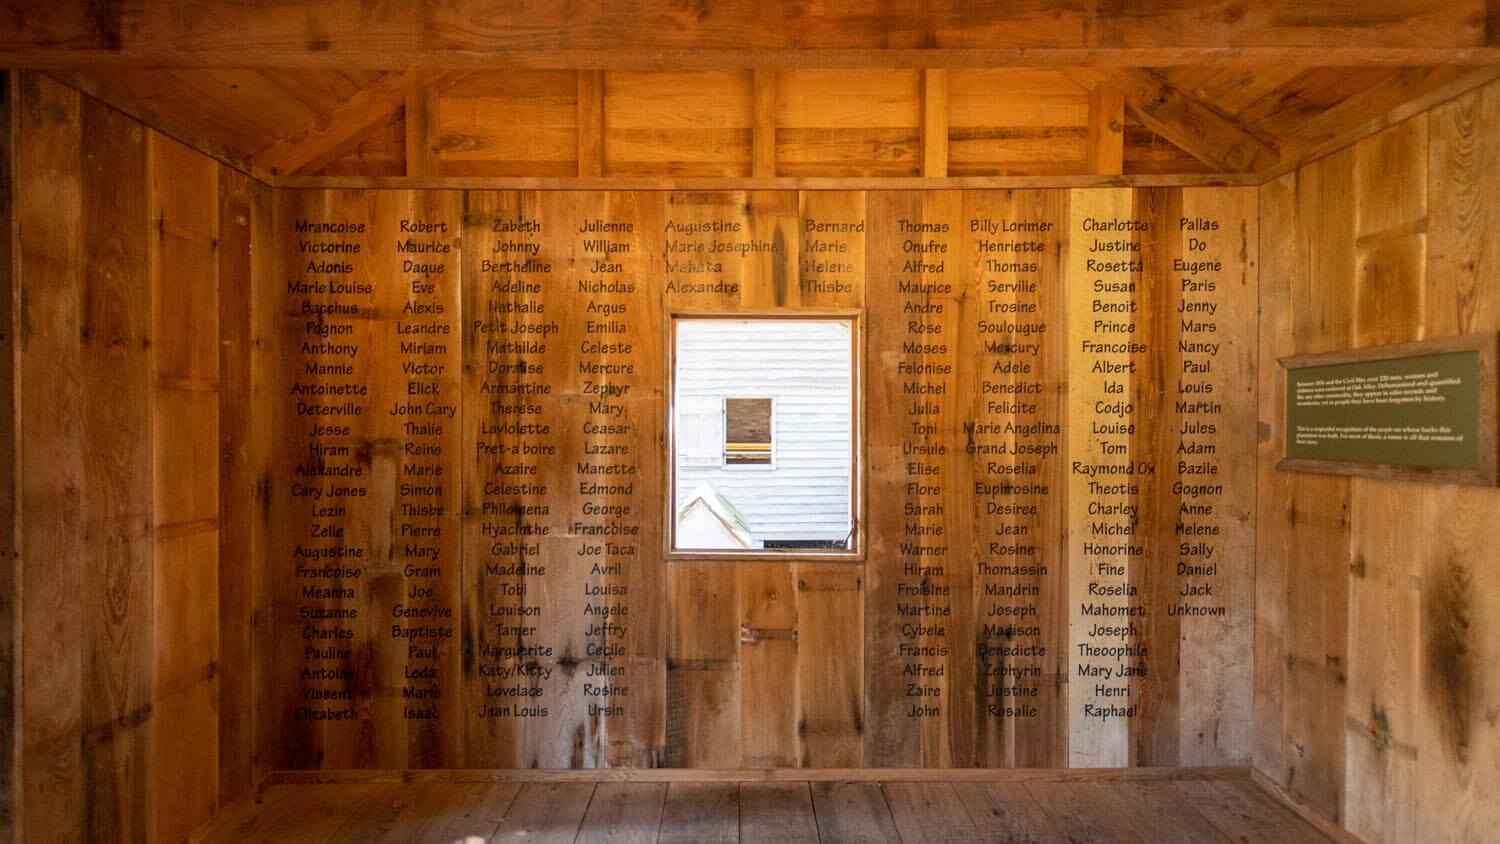 Mrancoise
Victorine
Adonis
Marie Louise
Bacchus
Pognon
Anthony
Mannie
Antoinette
Deterville
Jesse
Hiram
Alexandre
Cary Jones
Lezin
Zelie
Augustine
Francoise
Meanna
Suzanne
Charles
Pauline
Antoine
Vincent
Elizabeth
Robert
Maurice
Daque
Eve
Alexis
Leandre
Miriam
Victor
Elick
John Cary
Thalie
Reine
Marie
Simon
Thisbe
Pierre
Mary
Gram
Joe
Genevive
Baptiste
Paul
Leda
Marie
Isaac
Zabeth
Johnny
Bertheline
Adeline
Nathalie
Petit Joseph
Mathilde
Doralise
Armantine
Therese
Laviolette
Pret-a boire
Azaire
Celestine
Philomena
Hyacinthe
Gabriel
Madeline
Tobi
Louison
Tamer
Marguerite
Katy/Kitty
Lovelace
Jean Louis
Julienne
William
Jean
Nicholas
Argus
Emilia
Celeste
Mercure
Zephyr
Mary
Ceasar
Lazare
Manette
Edmond
George
Francoise
Joe Taca
Avril
Louisa
Angele
Jeffry
Cecile
Julien
Rosine
Ursin
Augustine
Marie Josephine
Mehata
Alexandre
Bernard
Marie
Helene
Thisbe
Thomas
Onufre
Alfred
Maurice
Andre
Rose
Moses
Felonise
Michel
Julia
Toni
Ursule
Elise
Flore
Sarah
Marie
Warner
Hiram
Froisine
Martine
Cybele
Francis
Alfred
Zaire
John
Billy Lorimer
Henriette
Thomas
Serville
Trosine
Soulougue
Mercury
Adele
Benedict
Felicite
Marie Angelina
Grand Joseph
Roselia
Euphrosine
Desiree
Jean
Rosine
Thomassin
Mandrin
Joseph
Madison
Benedicte
Zephyrin
Justine
Rosalie
Charlotte
Justine
Rosetta
Susan
Benoit
Prince
Francoise
Albert
Ida
Codjo
Louise
Tom
Raymond Ox
Theotis
Charley
Michel
Honorine
Fine
Roselia
Mahomet
Joseph
Theoophile
Mary Jane
Henri
Raphael
Pallas
Do
Eugene
Paris
Jenny
Mars
Nancy
Paul
Louis
Martin
Jules
Adam
Bazile
Gognon
Anne
Helene
Sally
Daniel
Jack
Unknown
Between 1836 and the Civil War, over 220 men, women and
children were enslaved at Oak Alley. Dehumanized and quantified
like any other commodity, they appear in sales records and
inventories, yet as people they have been forgotten by history.
This is a respectful recognition of the people on whose backs this
plantation was built. For most of them, a name is all that remains of
their story.